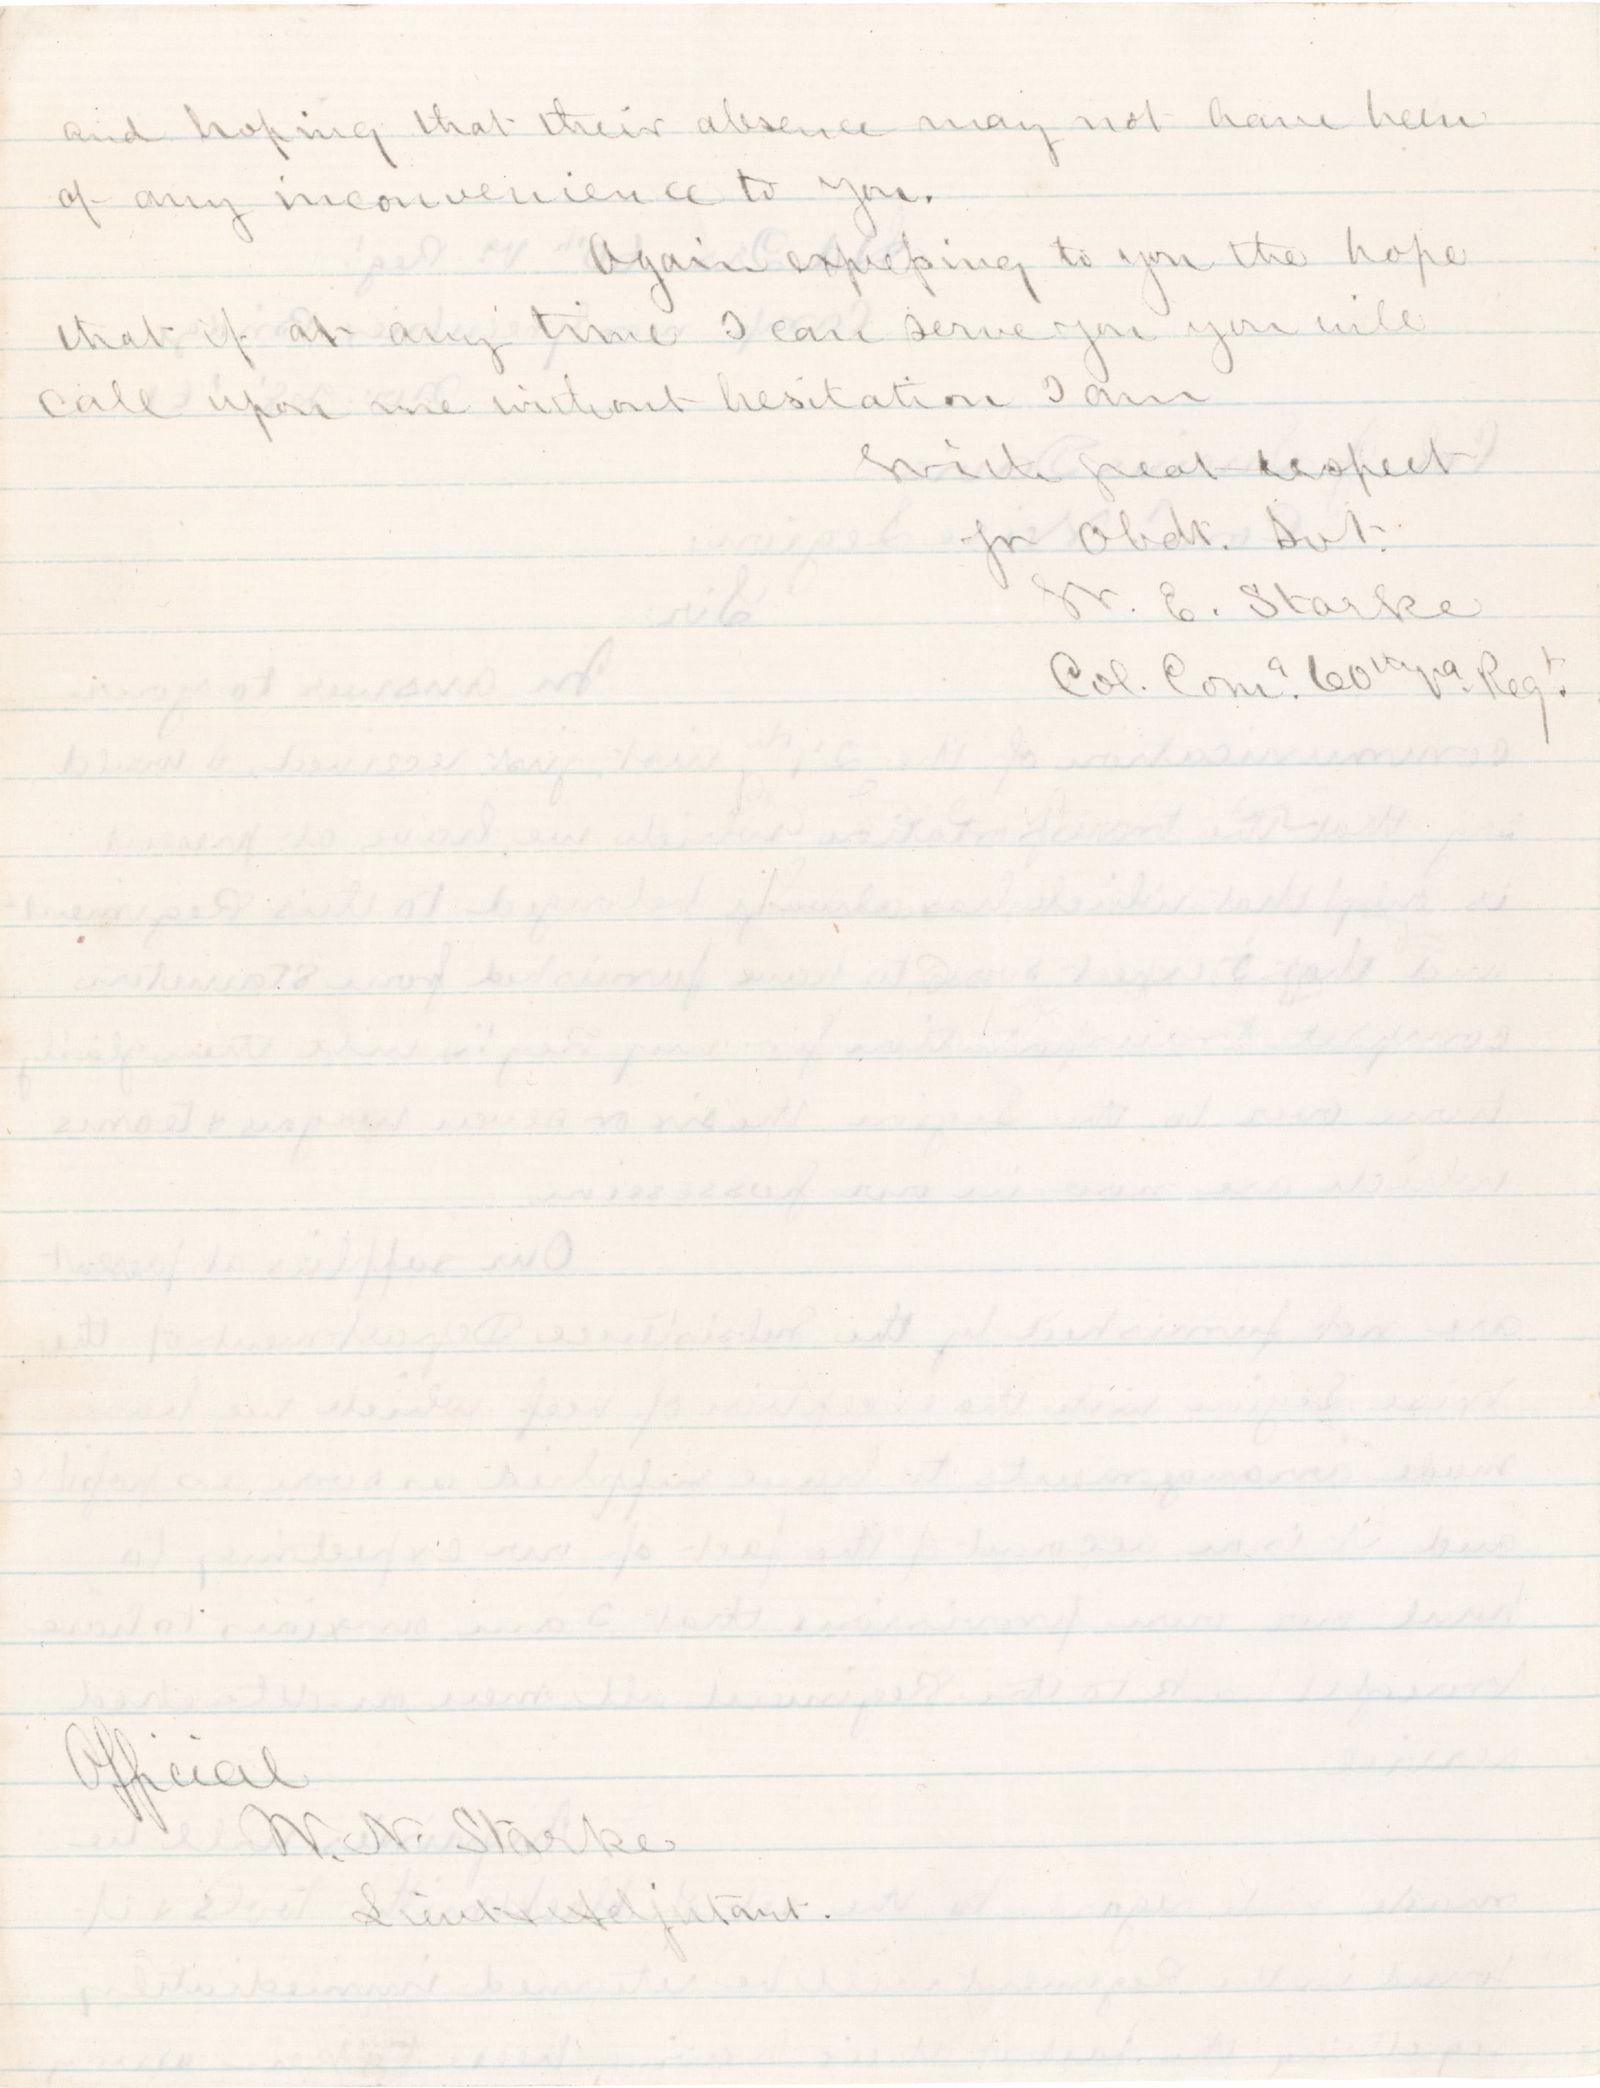 and hoping that their absence may not have been
of any inconvenience to you.
Again expressing to you the hope
that if at any time I can serve you you will
call upon me without hesitation I am
With great respect
yr Obdt. Svt.
W. E. Starke
Col. Comd. 60th Va. Regt.
Official
W. N. Starke
Lieut & Adjutant.